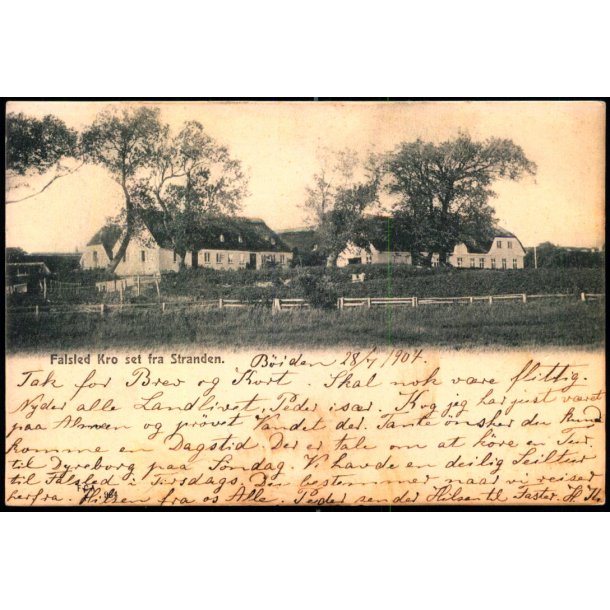 Falsled Kro set fra Stranden.
Böiden 28/7 1904.
Tak for Brev og Kort. Skal nok være flittig.
Nyder alle Landlivet, Peder især. K og jeg har just været
paa Almuen og prövet Vandet der. Tante önsker du kund
komme en Dagstid. Der er Tale om at köre en Tur
til Dyreborg paa Söndag. Vi havde en deilig Seiltur
til Falsled i Tirsdags. Du bestemmer naar vi reiser
herfra. Hilsen fra os Alle. Peder sender Hilsen til Faster. H